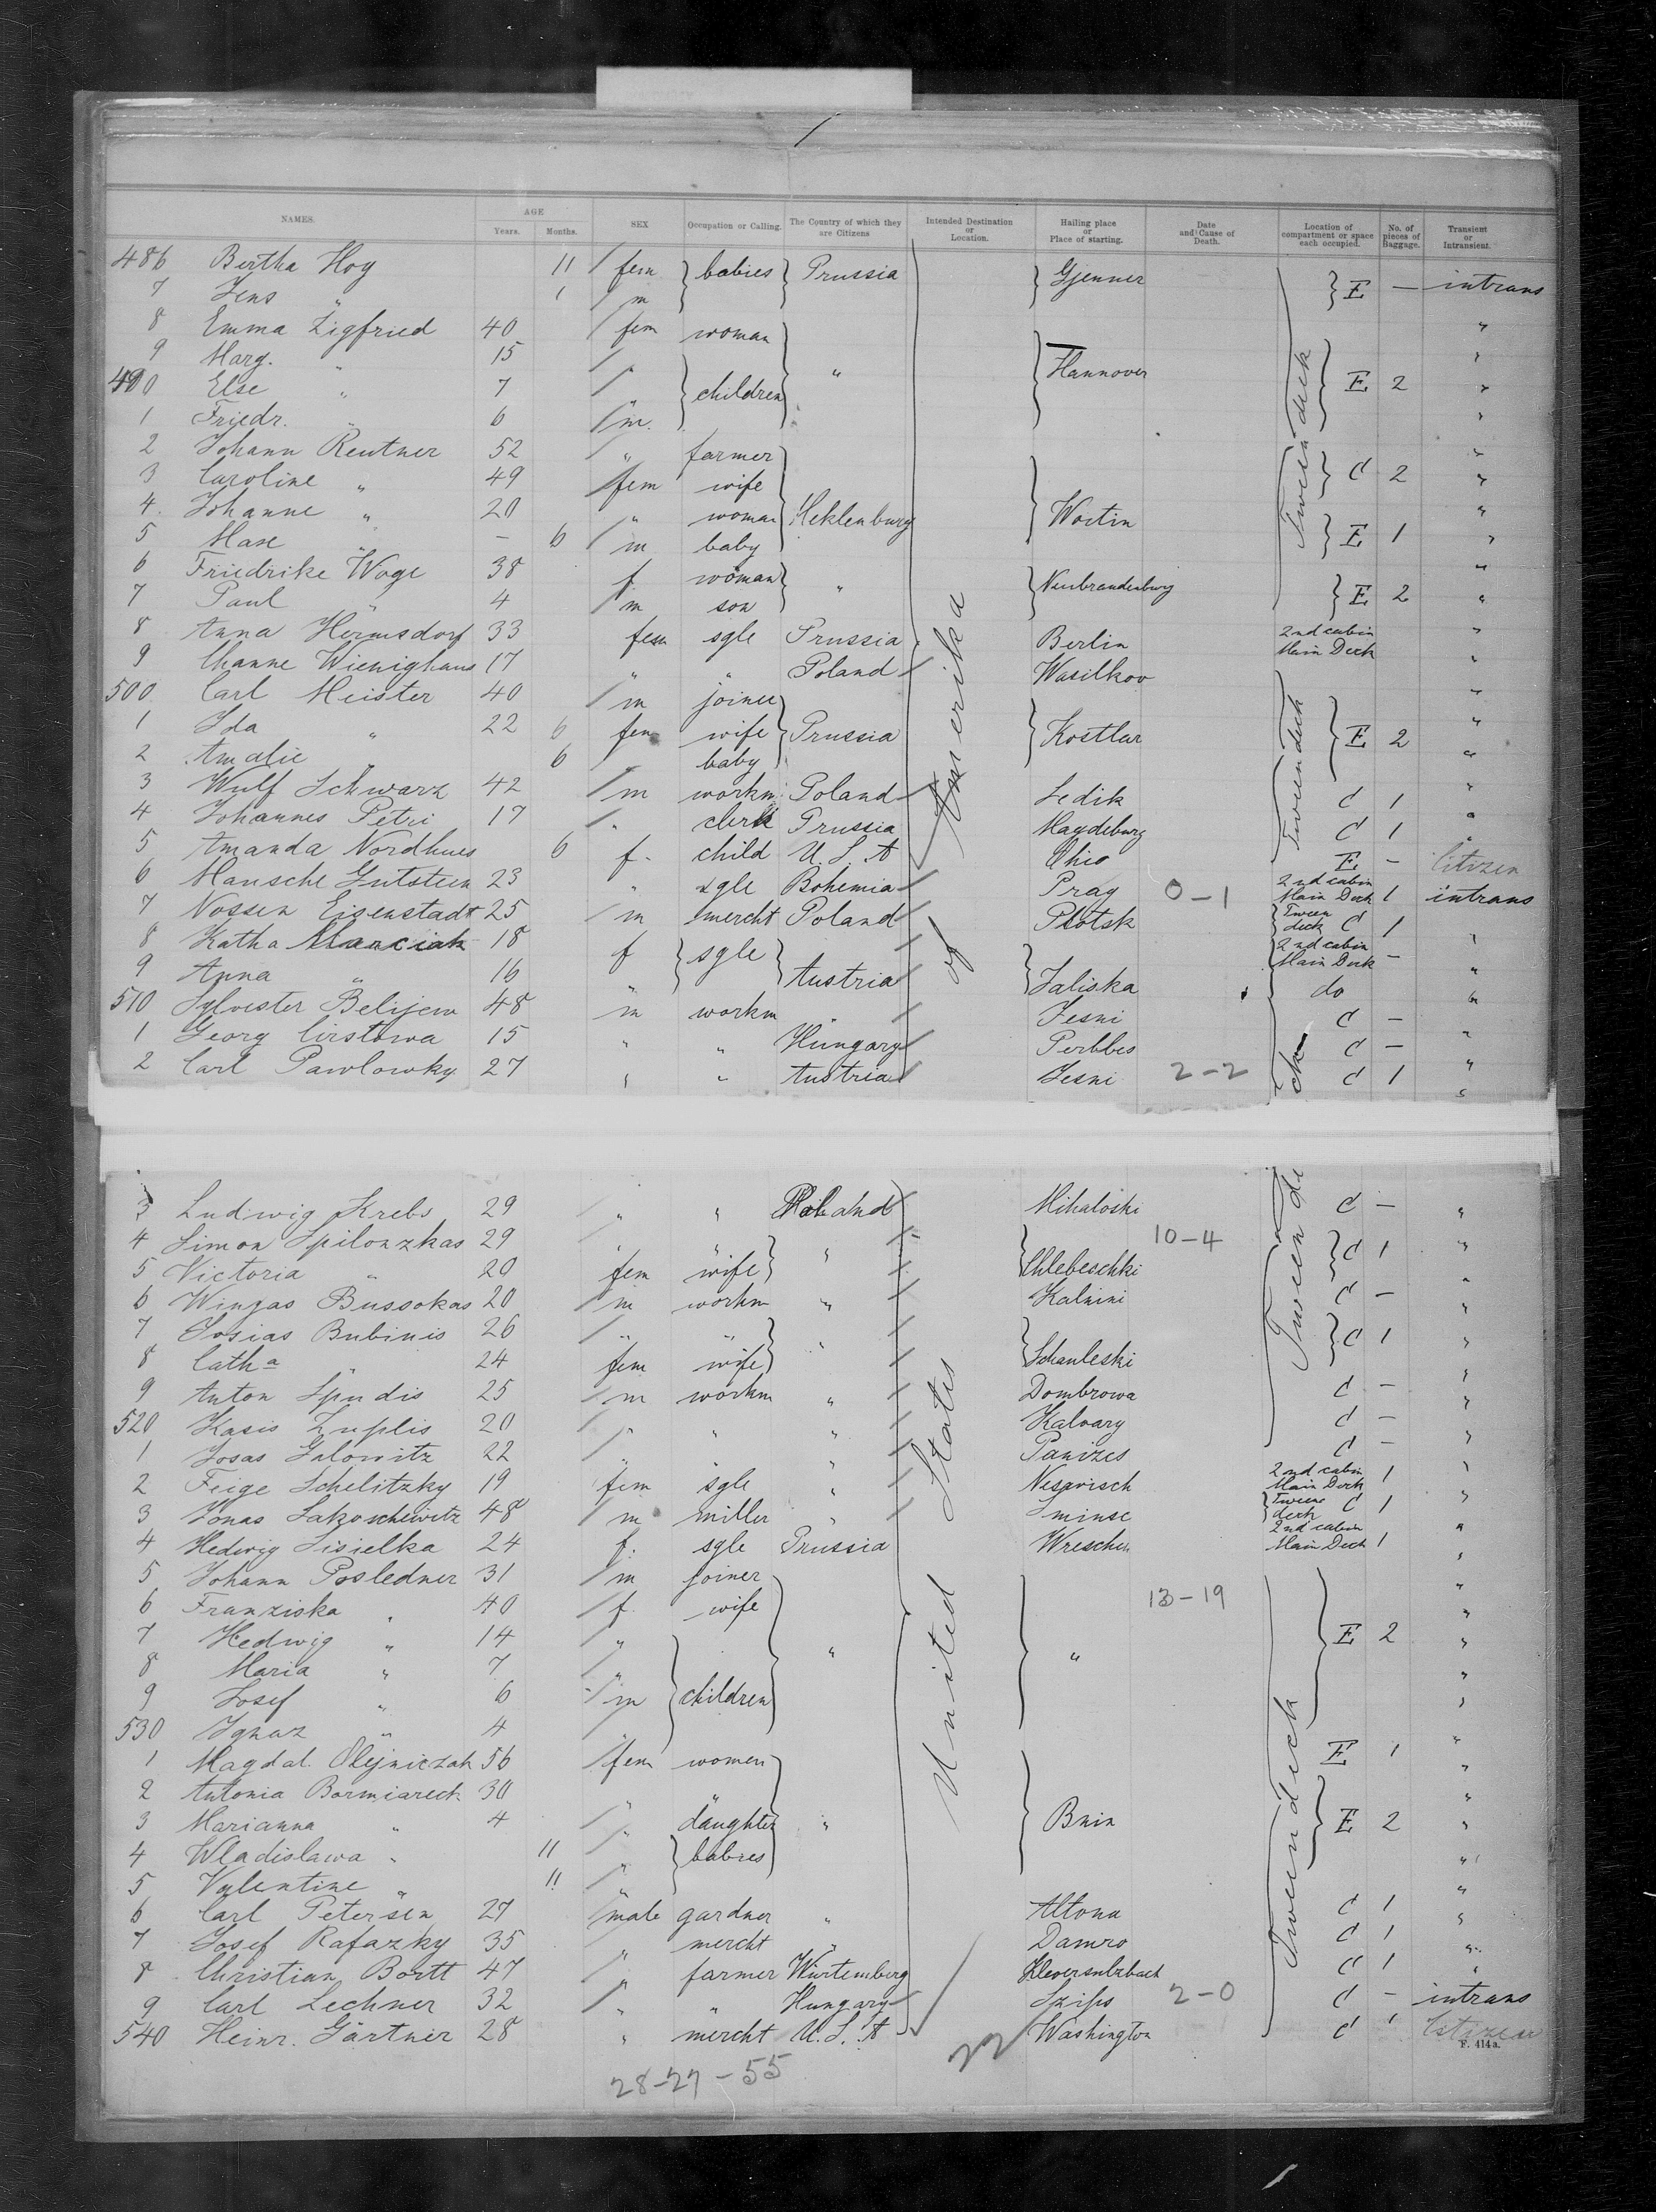 NAMES. AGE Years. Months. SEX Occupation or Calling. The Country of which they are Citizens Intended Destination or Location. Hailing place or Place of starting. Date and Cause of Death. Location of compartment or space each occupied. No. of pieces of Baggage. Transient or Intransient.
486 Bertha Hoy 11 fem babies Prussia Gjenner E — intrans
7 Jens " 1 m
8 Emma Zigfried 40 fem woman "
9 Marg. " 15 " children " Hannover E 2 "
490 Else " 7 " "
1 Friedr. " 6 m. "
2 Johann Reutner 52 " farmer C 2 "
3 Caroline " 49 fem wife "
4. Johanne " 20 " woman Meklenburg Wortin "
5 Max " — 6 m baby E 1 "
6 Friedrike Woge 38 f woman " Neubrandenburg E 2 "
7 Paul " 4 m son "
8 Anna Hermsdorf 33 fem sgle Prussia Berlin 2nd cabin Main Deck "
9 Channe Wienighaus 17 " " Poland Wasilkov "
500 Carl Meister 40 m joiner "
1 Ida " 22 6 fem wife Prussia Kostlar E 2 "
2 Amalie " 6 baby "
3 Wulf Schwarz 42 m workm Poland Sedik C 1 "
4 Johannes Petri 17 " clerk Prussia Magdeburg C 1 "
5 Amanda Nordhues 6 f. child U.S.A Ohio E — Citizen
6 Mansche Gutstein 23 " sgle Bohemia Prag 0-1 2nd cabin Main Deck 1 intrans
7 Nossen Eisenstadt 25 m mercht Poland Plotsk Tween deck C 1
8 Katha Marciak 18 f sgle 2nd cabin Main Deck — "
9 Anna " 16 " Austria Saliska do "
510 Sylvester Belijew 48 m workm " Jesni C — "
1 Georg Cirstowa 15 " " Hungary Perbbes C — "
2 Carl Pawlowky 27 " " Austria Jesni 2-2 C 1 "
Tween deck
Tween deck
Amerika
of
3 Ludwig Krebs 29 " " Poland Mihaloski C — "
4 Simon Spilonzkas 29 " " " 10-4 C 1 "
5 Victoria " 20 fem wife Chlebeschki "
6 Winzas Bussokas 20 m workm " Kalnini C — "
7 Josias Bubinis 26 " " " C 1 "
8 Catha " 24 fem wife Schauleski "
9 Anton Spudis 25 m workm " Dombrowa C — "
520 Kasis Zuplis 20 " " " Kalvary C — "
1 Josas Galowitz 22 " " " Panizes C — "
2 Feige Schelitzky 19 fem sgle " Neswisch 2nd cabin Main Deck 1 "
3 Jonas Sakoschewitz 48 m miller " Sminsc Tween deck C 1 "
4 Hedwig Sisielka 24 f. sgle Prussia Wreschen 2nd cabin Main Deck 1 "
5 Johann Posledner 31 m joiner "
6 Franziska " 40 f wife 13-19 "
7 Hedwig " 14 " " " E 2 "
8 Maria " 7 " "
9 Josef " 6 m children "
530 Ignaz " 4 "
1 Magdal. Olejniczak 56 fem women E 1 "
2 Antonia Bormiareck 30 " "
3 Marianna " 4 " daughter " Bnin E 2 "
4 Wladislawa " 11 " babies "
5 Valentine " 11 " "
6 Carl Petersen 27 male gardner " Altona C 1 "
7 Josef Rafazky 35 " mercht " Damro C 1 "
8 Christian Bortt 47 " farmer Würtemberg Kleversulzbach C 1 "
9 Carl Lechner 32 " " Hungary Szips 2-0 C — intrans
540 Heinr. Gärtner 28 " mercht U.S.A Washington C 1 Citizen
United States
Tween deck
Tween deck
28-27-55
22
F. 414a.